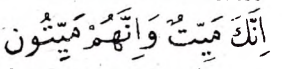 اِنَّكَ مَيِّتٌ وَاِنَّهُمْ مَيِّتُون